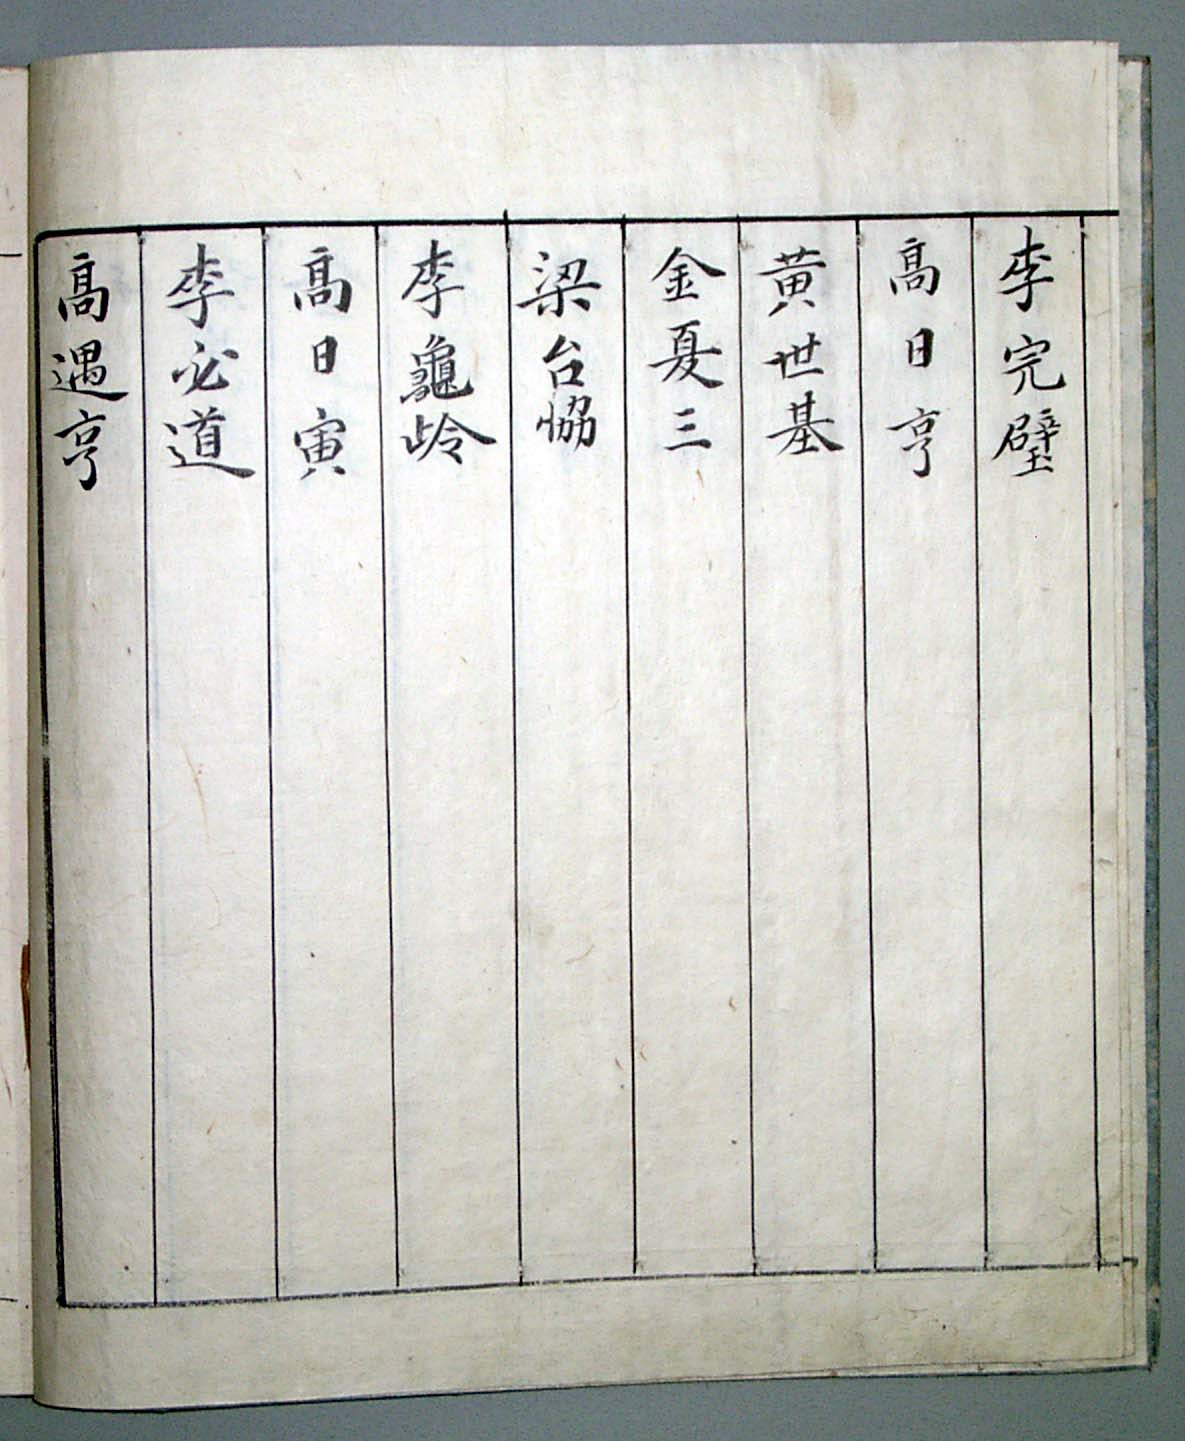 李完璧
髙日亨
黄世基
金夏三
梁台恊
李龜岭
髙日寅
李必道
髙遇亨